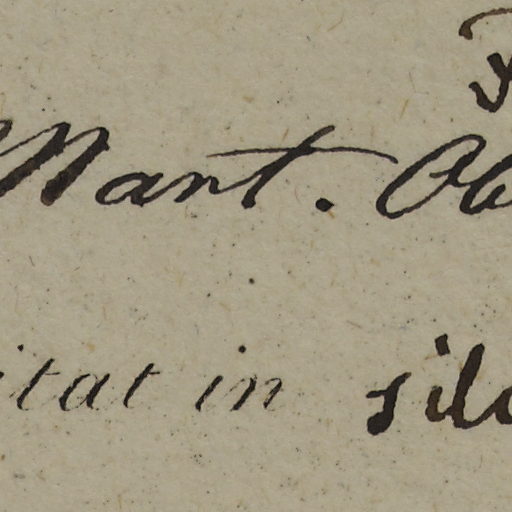 Mant. Ob
itat in silv